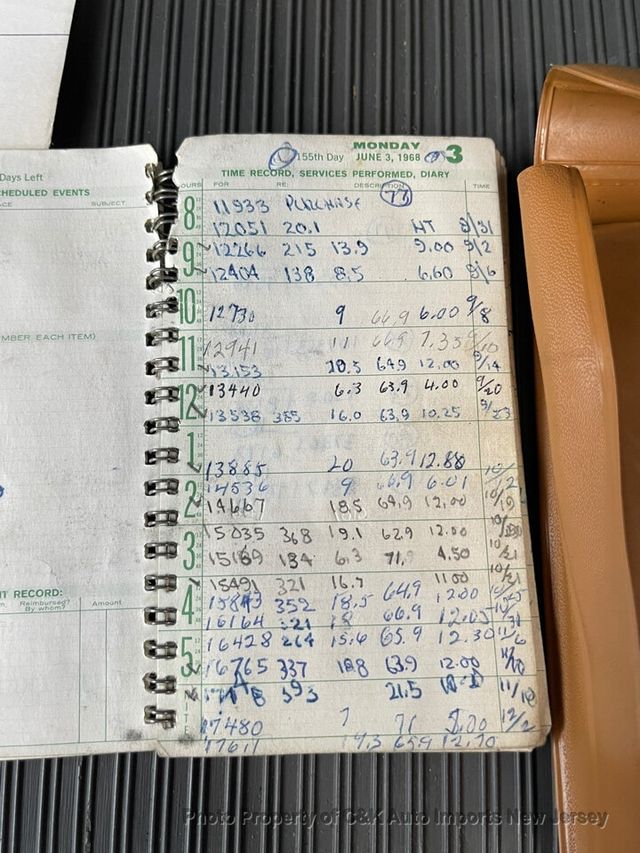 Days Left
SCHEDULED EVENTS
SUBJECT
MBER EACH ITEM)
T RECORD:
Reimbursed? By whom? Amount
155th Day MONDAY JUNE 3, 1968 3
TIME RECORD, SERVICES PERFORMED, DIARY
HOURS FOR RE: DESCRIPTION 77 TIME
8 11933 PURCHASE
12051 20.1 NT 8/31
9 12266 215 13.9 9.00 9/2
12404 138 8.5 6.60 9/6
10 12730 9 66.9 6.00 9/8
11 12941 11 66.9 7.35
13153 18.5 64.9 12.00 9/14
12 13440 6.3 63.9 4.00 9/20
13538 385 16.0 63.9 10.25 9/23
1 13885 20 63.9 12.88
2 14536 9 66.9 6.01
14667 18.5 64.9 12.00 10/19
15035 368 19.1 62.9 12.00
3 15169 134 6.3 71.9 4.50 10/21
15491 321 16.7 11.00 10/21
4 15843 352 18.5 64.9 12.00 10/25
16164 321 18 66.9 12.05 10/31
16428 264 15.6 65.9 12.30 11/6
5 16765 337 188 63.9 12.00 11/10
393 21.5 11/18
17480 7 71 5.00 12/2
19.3 65.9 12.70
Photo Property of C&K Auto Imports New Jersey